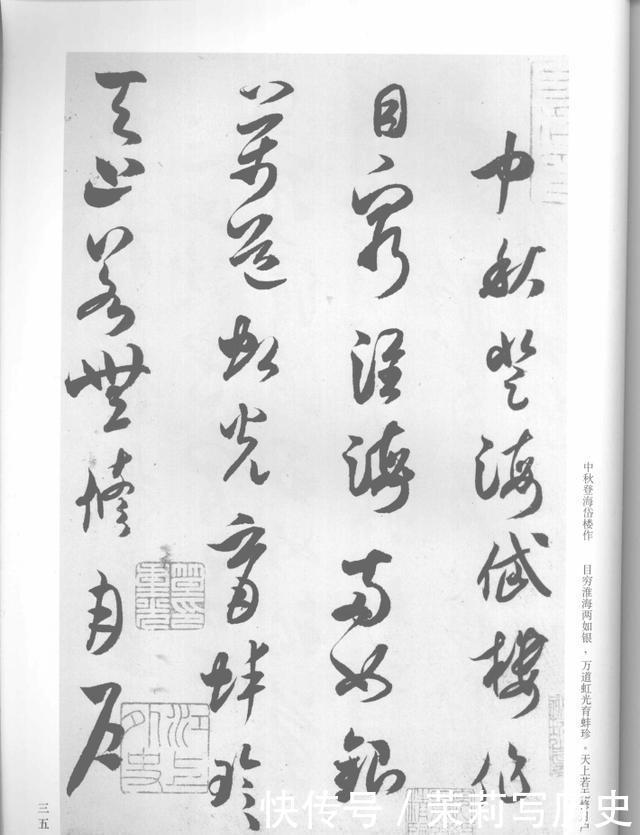 中秋登海岱楼作
目穷淮海两如银
万道虹光育蚌珍
天上若无修月户
中秋登海岱楼作 目穷淮海两如银，万道虹光育蚌珍。天上若无修月户
三五
快传号／茉莉写历史